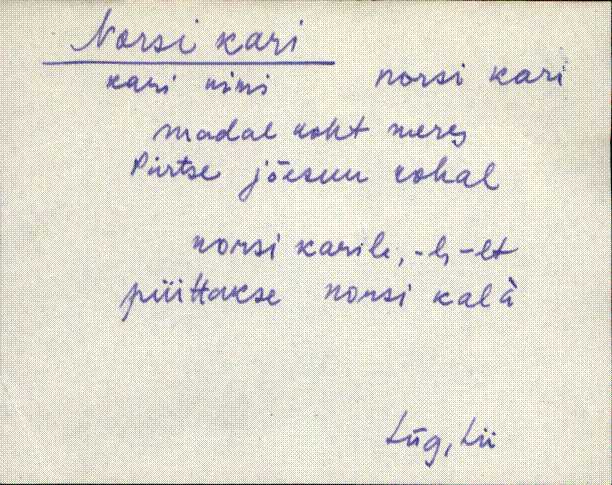 Norsi kari
kari nimi norsi kari
madal koht meres
Purtse jõesuu kohal
norsi karile, -l, -lt
püittakse norsi kala
Lüg, Lii